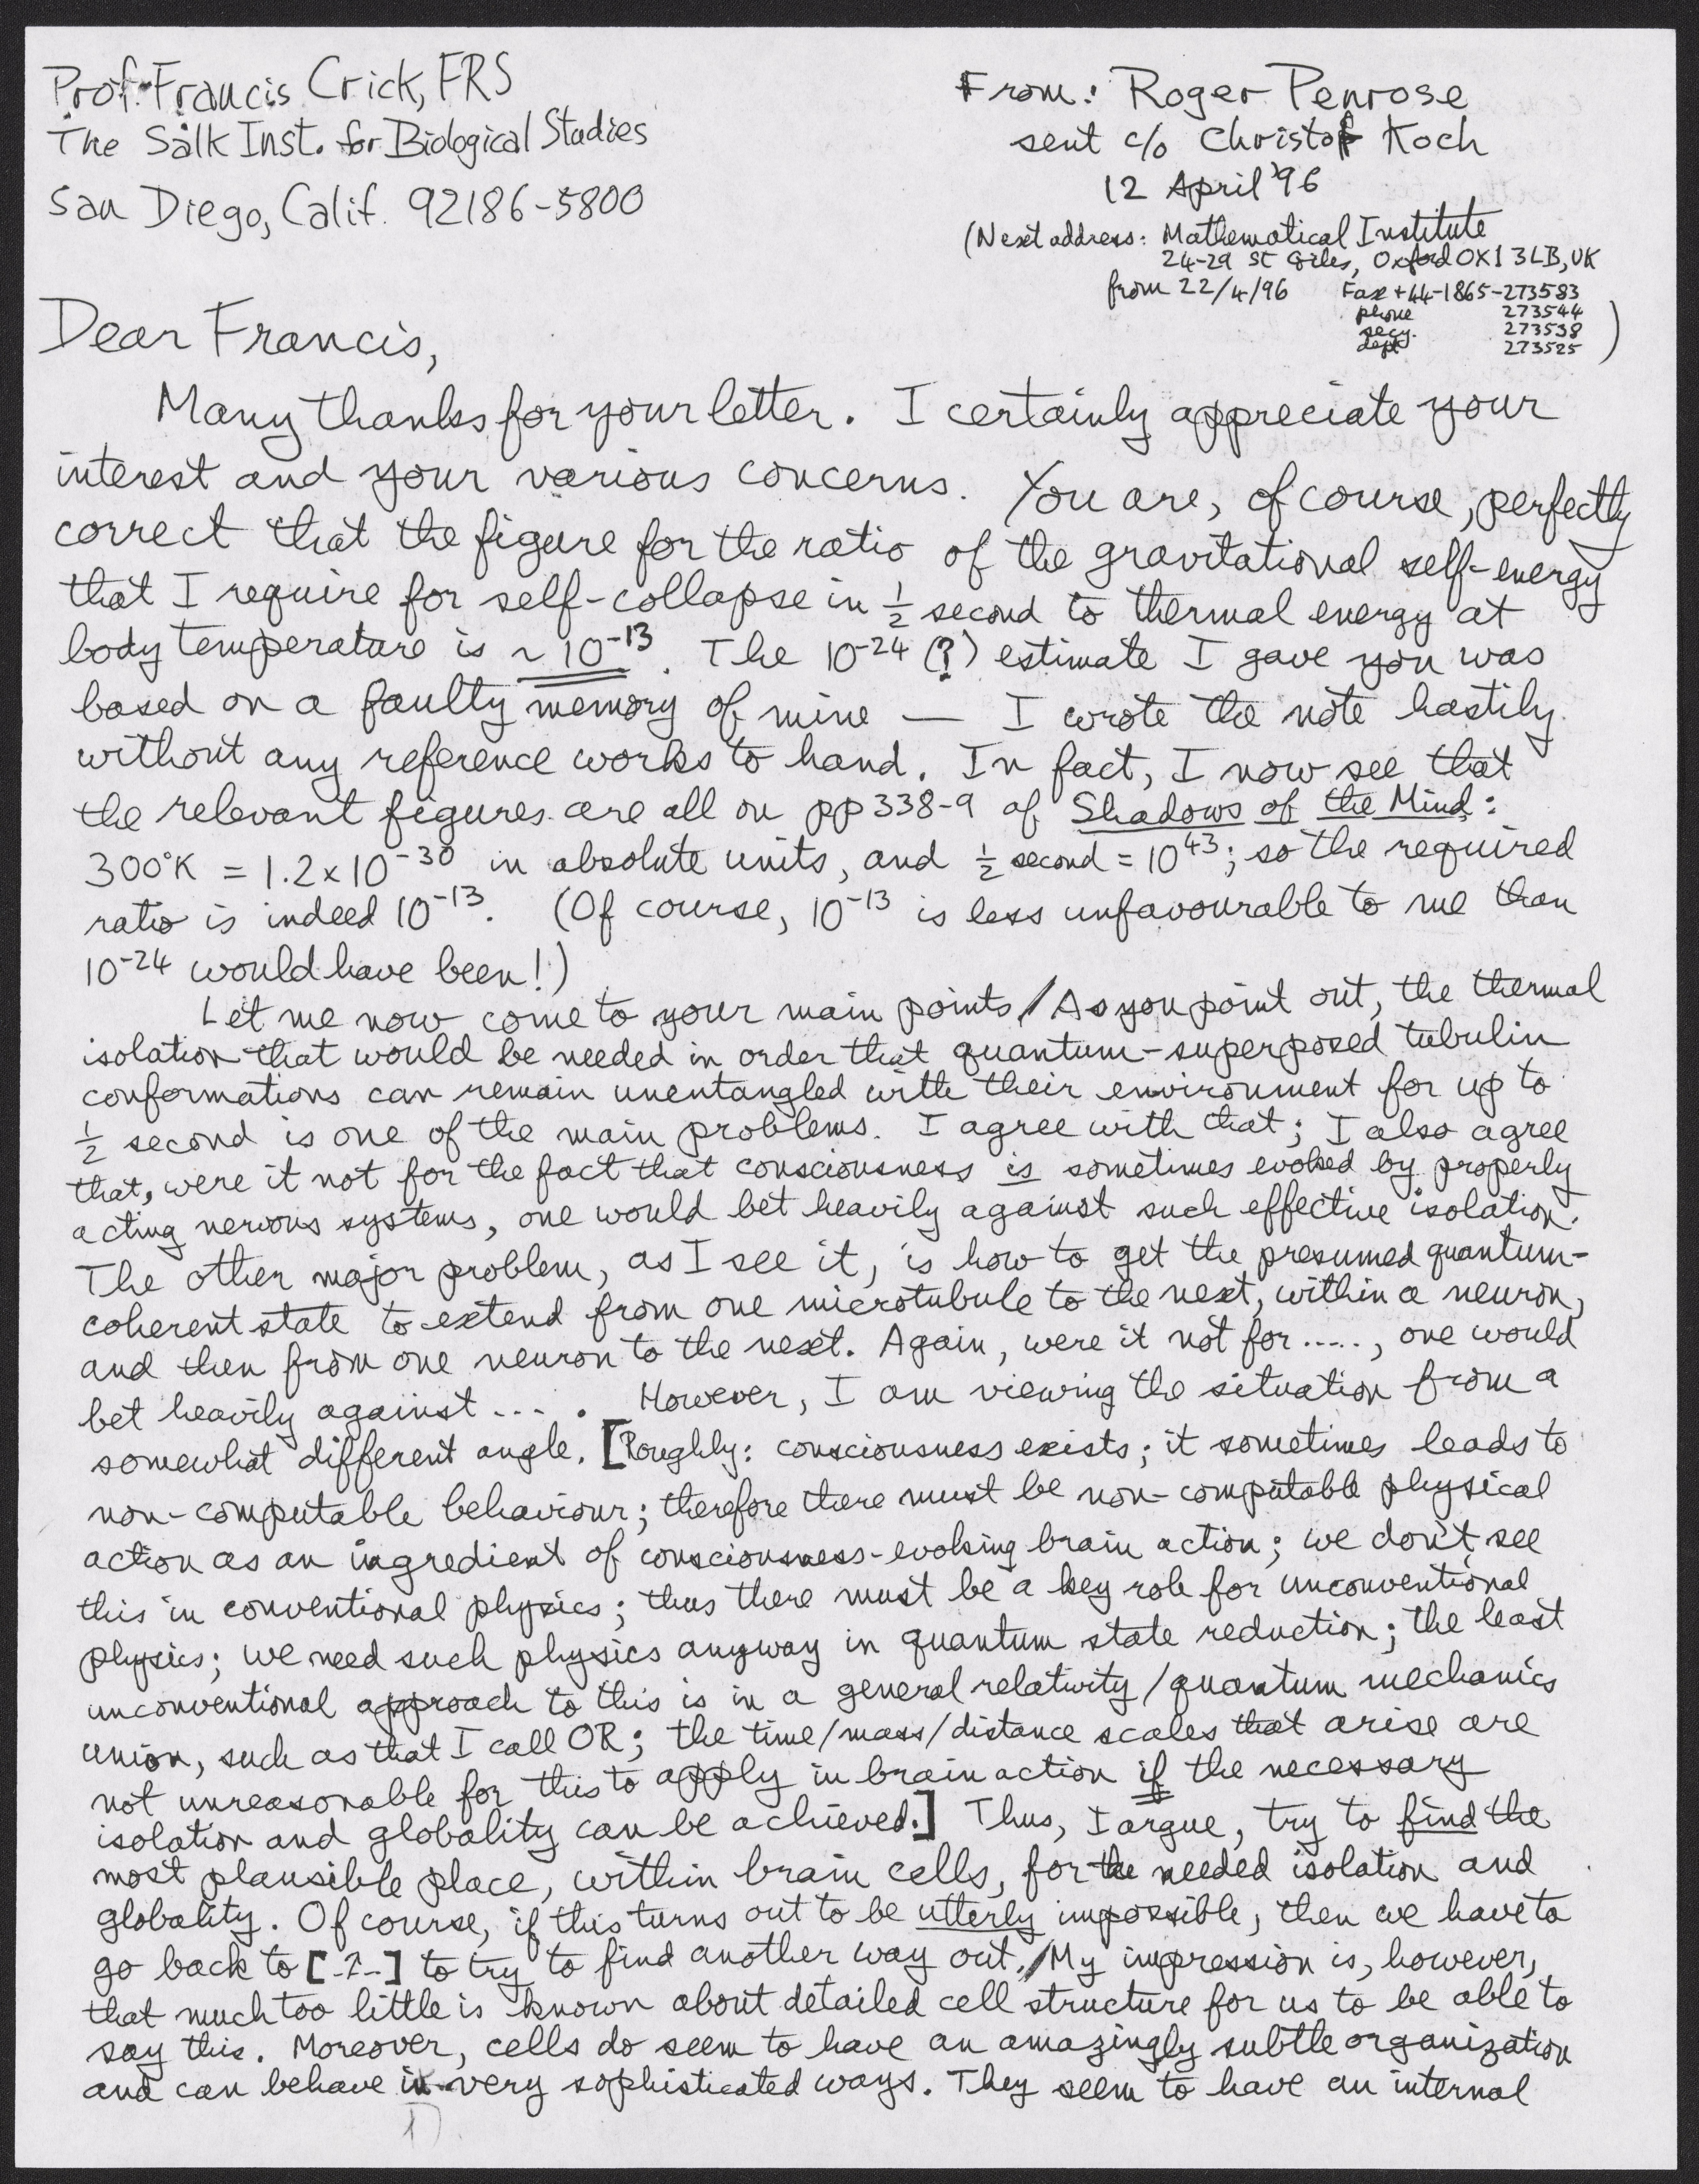 Prof. Francis Crick, FRS
The Salk Inst. for Biological Studies
San Diego, Calif. 92186-5800
From: Roger Penrose
sent c/o Christof Koch
12 April '96
(Next address: Mathematical Institute
24-29 St Giles, Oxford OX1 3LB, UK
from 22/4/96 Fax +44-1865-273583
phone 273544
secy. 273538
dept 273525 )
Dear Francis,
Many thanks for your letter. I certainly appreciate your
interest and your various concerns. You are, of course, perfectly
correct that the figure for the ratio of the gravitational self-energy
that I require for self-collapse in ½ second to thermal energy at
body temperature is ~10⁻¹³. The 10⁻²⁴ (?) estimate I gave you was
based on a faulty memory of mine — I wrote the note hastily
without any reference works to hand. In fact, I now see that
the relevant figures are all on pp 338-9 of Shadows of the Mind:
300°K = 1.2×10⁻³⁰ in absolute units, and ½ second = 10⁴³; so the required
ratio is indeed 10⁻¹³. (Of course, 10⁻¹³ is less unfavourable to me than
10⁻²⁴ would have been!)
Let me now come to your main points/As you point out, the thermal
isolation that would be needed in order that quantum-superposed tubulin
conformations can remain unentangled with their environment for up to
½ second is one of the main problems. I agree with that; I also agree
that, were it not for the fact that consciousness is sometimes evoked by properly
acting nervous systems, one would bet heavily against such effective isolation.
The other major problem, as I see it, is how to get the presumed quantum-
coherent state to extend from one microtubule to the next, within a neuron,
and then from one neuron to the next. Again, were it not for ....., one would
bet heavily against ... . However, I am viewing the situation from a
somewhat different angle. [Roughly: consciousness exists; it sometimes leads to
non-computable behaviour; therefore there must be non-computable physical
action as an ingredient of consciousness-evoking brain action; we don't see
this in conventional physics; thus there must be a key role for unconventional
physics; we need such physics anyway in quantum state reduction; the least
unconventional approach to this is in a general relativity/quantum mechanics
union, such as that I call OR; the time/mass/distance scales that arise are
not unreasonable for this to apply in brain action if the necessary
isolation and globality can be achieved.] Thus, I argue, try to find the
most plausible place, within brain cells, for the needed isolation and
globality. Of course, if this turns out to be utterly impossible, then we have to
go back to [-↑-] to try to find another way out./My impression is, however,
that much too little is known about detailed cell structure for us to be able to
say this. Moreover, cells do seem to have an amazingly subtle organization
and can behave in very sophisticated ways. They seem to have an internal
1)